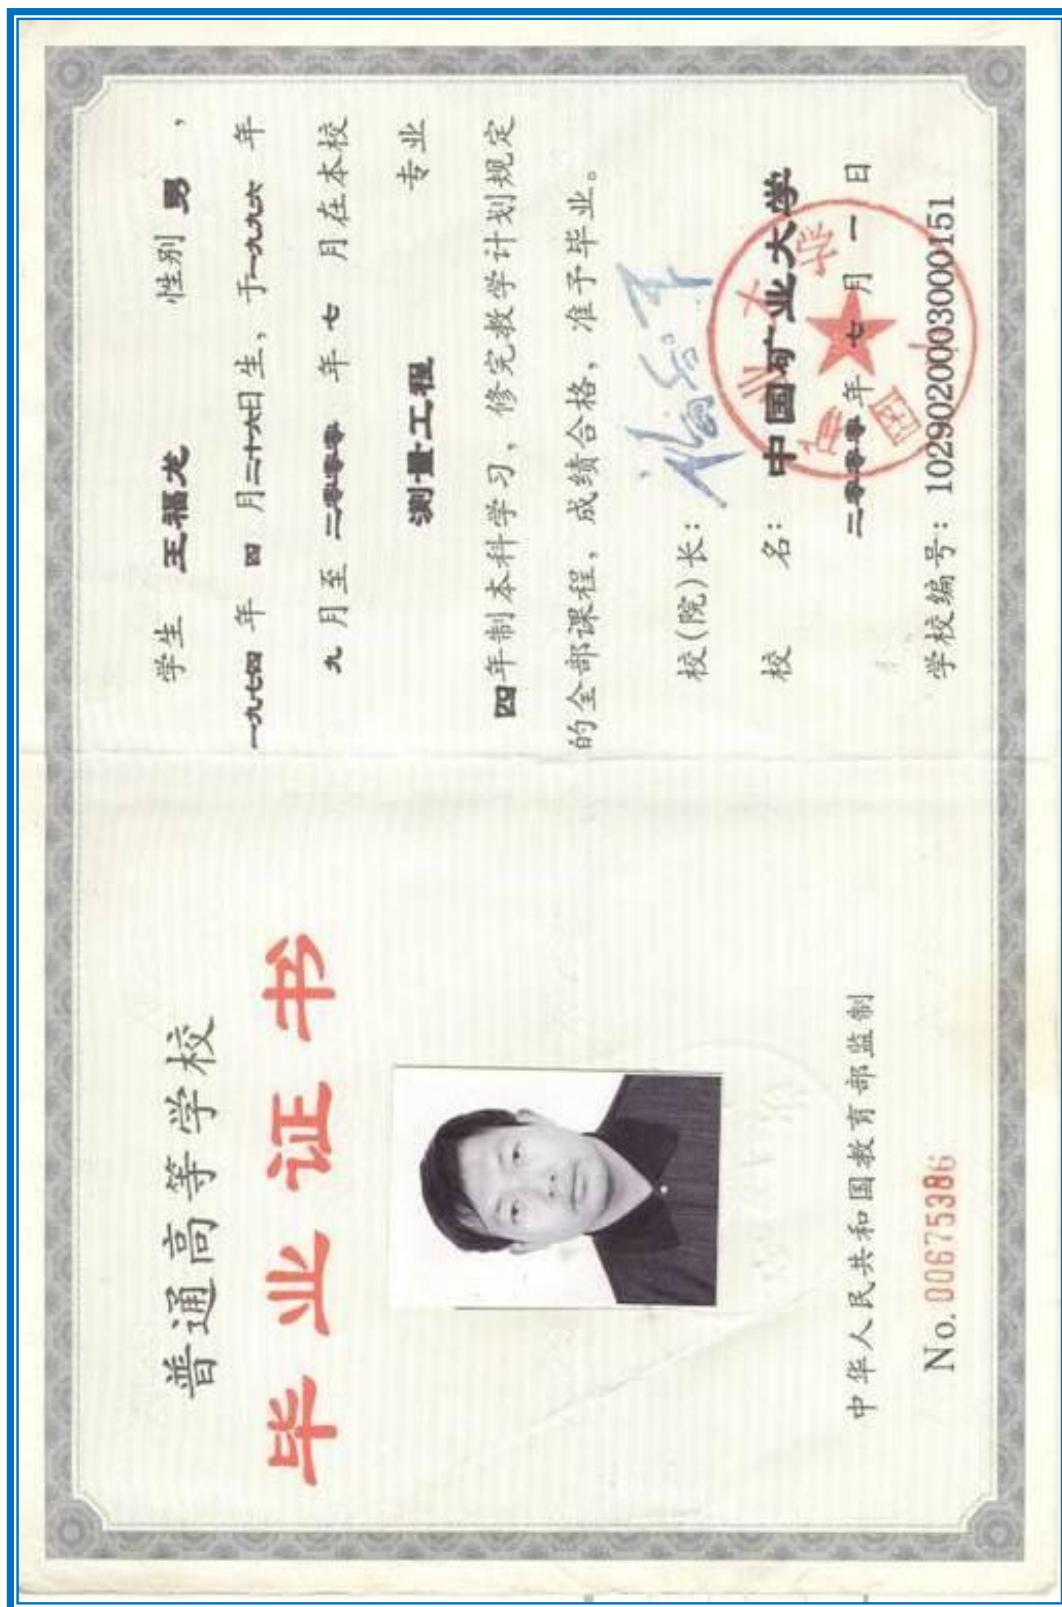 普通高等学校
毕业证书
中华人民共和国教育部监制
No. 00675386
学生 王福龙 性别 男，
一九七四 年 四 月二十六日生，于一九九六 年
九 月至 二零零零 年 七 月在本校
测量工程 专业
四年制本科学习，修完教学计划规定
的全部课程，成绩合格，准予毕业。
校(院)长：
校 名： 中国矿业大学
二零零零年 七 月 一 日
学校编号：1029020003000151